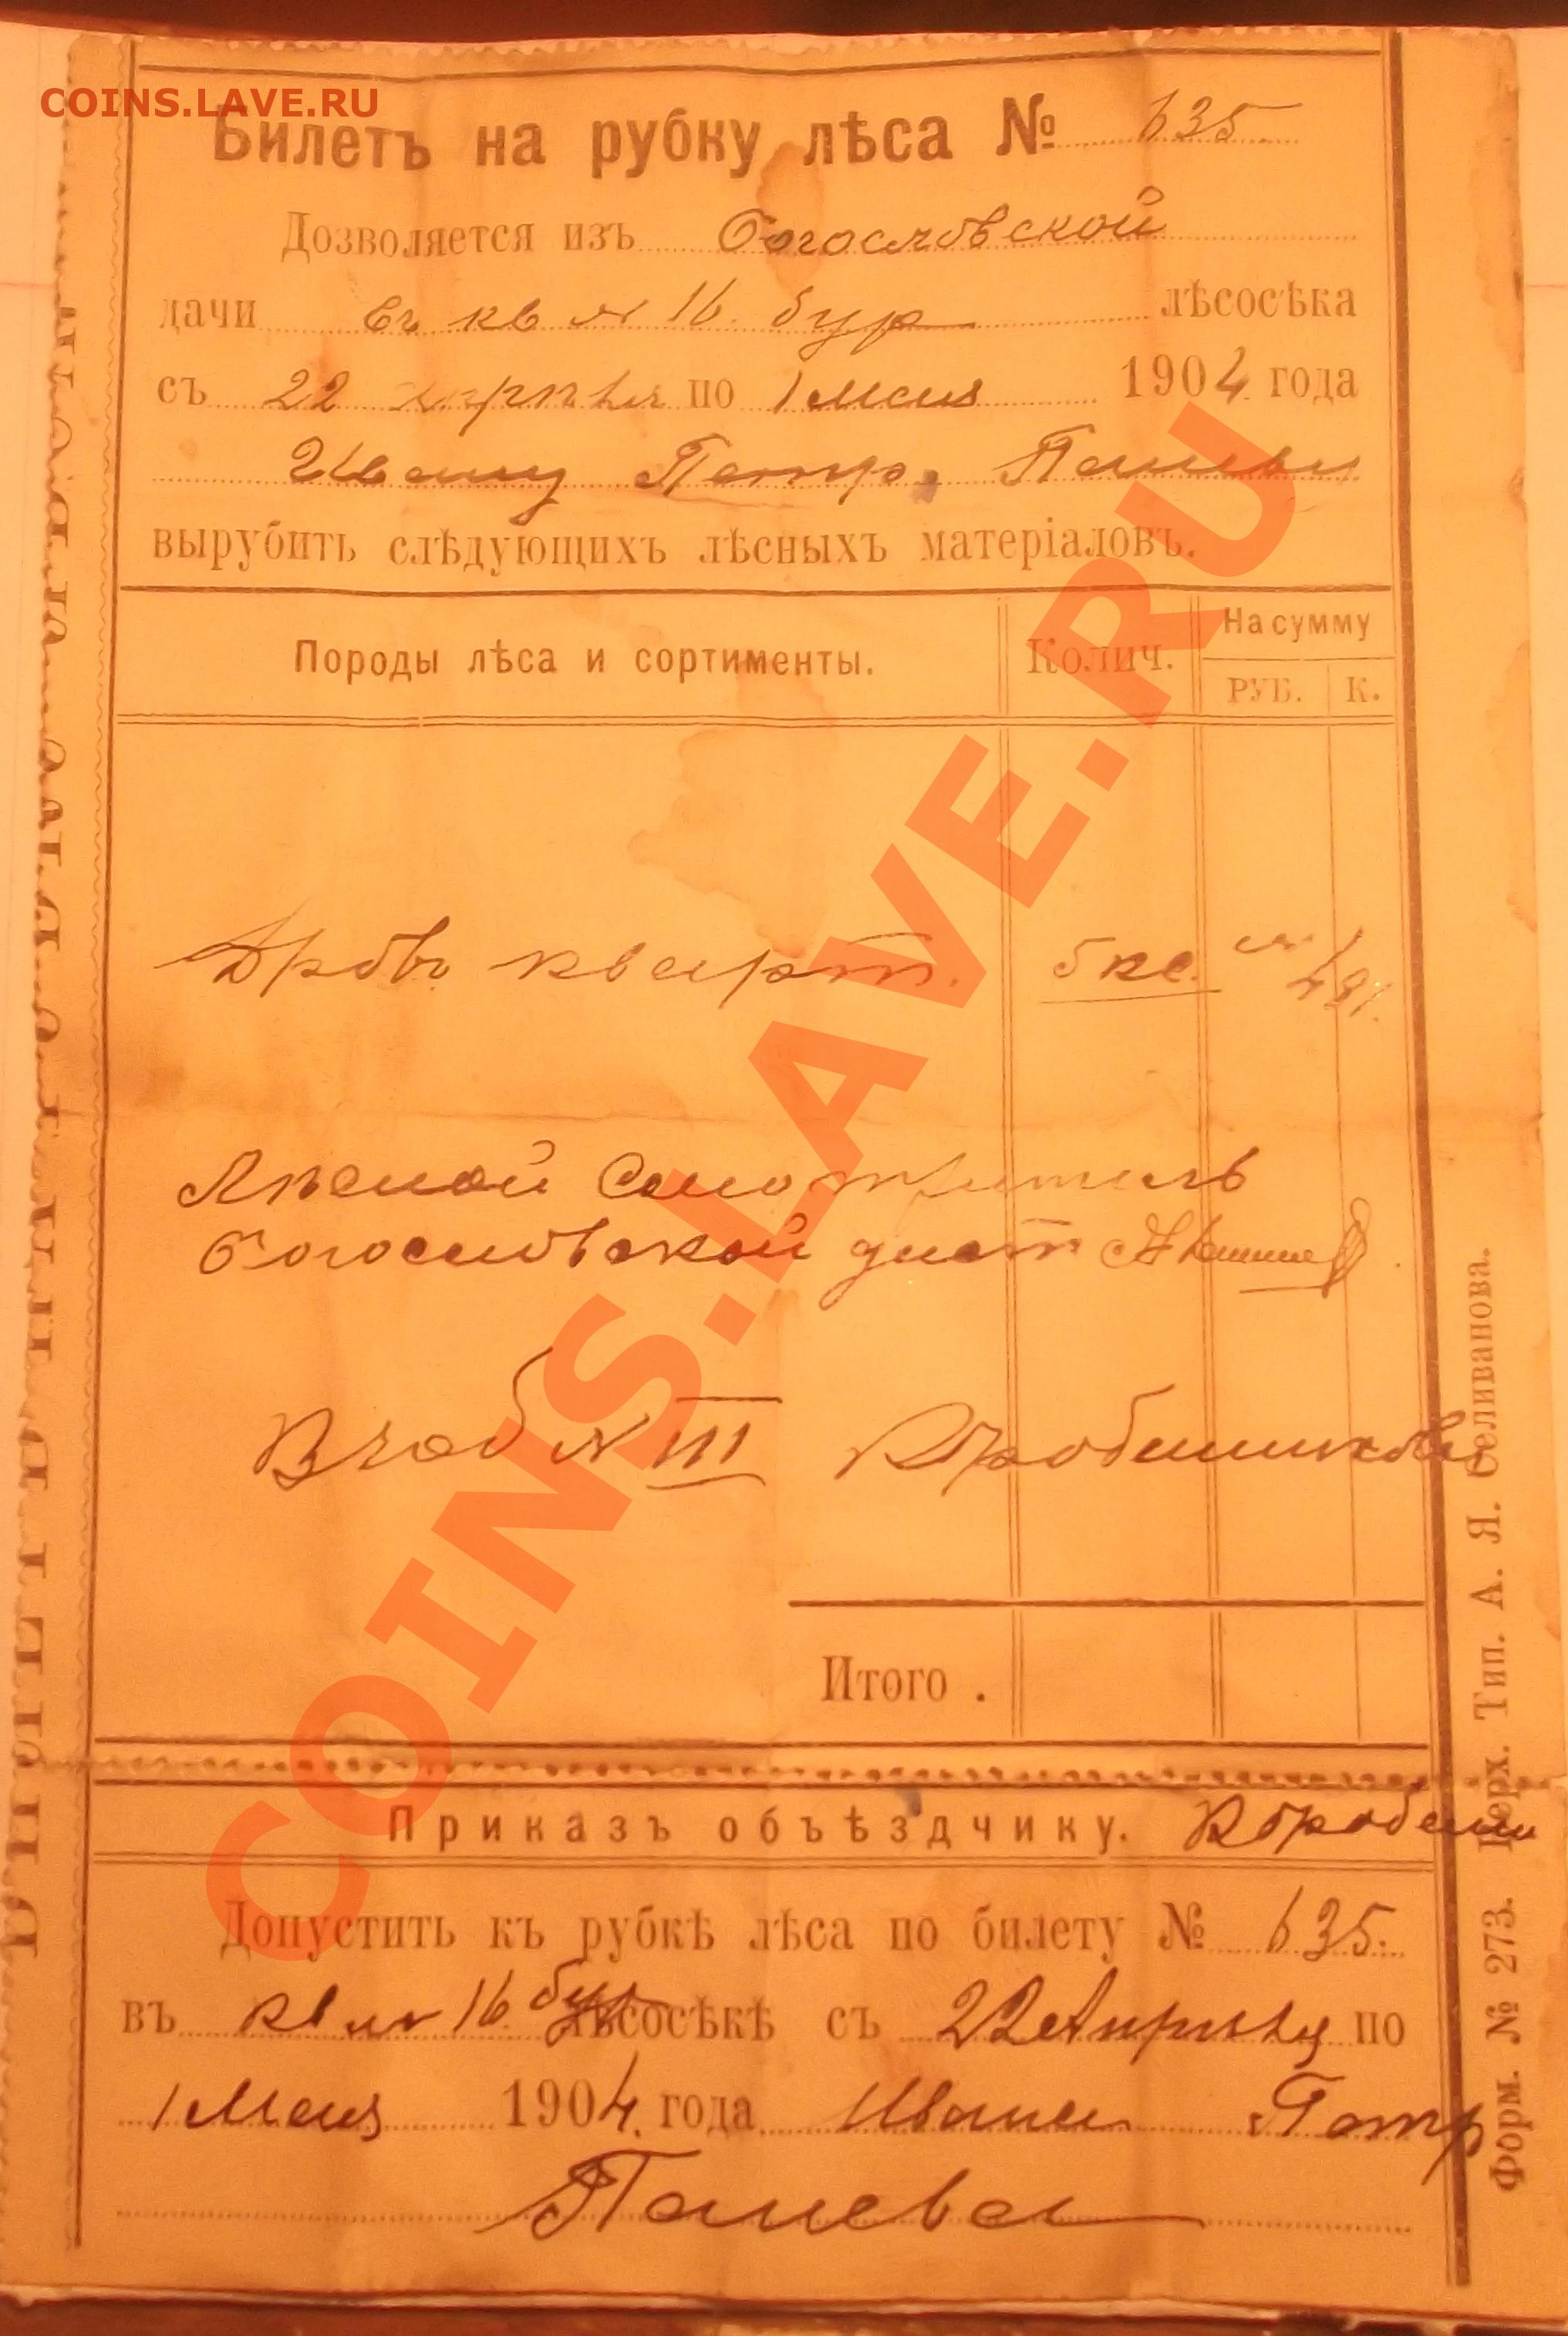 COINS.LAVE.RU
Билетъ на рубку лѣса № 635
Дозволяется изъ Богословской
дачи въ кв № 16 бур лѣсосѣка
съ 22 апрѣля по 1 Мая 1904 года
Ивану Петр.
вырубить слѣдующихъ лѣсныхъ матеріаловъ.
Породы лѣса и сортименты. Колич. На сумму
РУБ. К.
Дровъ кварт. 5 кс.
Лѣсной Смотритель
Богословской дист
№ III
Итого .
Приказъ объѣздчику.
Допустить къ рубкѣ лѣса по билету № 635.
въ кв № 16 бур лѣсосѣкѣ съ 22 Апрѣля по
1 Мая 1904 года Ивана Петр
Форм. № 273. Верх. Тип. А. Я. Селиванова.
COINS.LAVE.RU